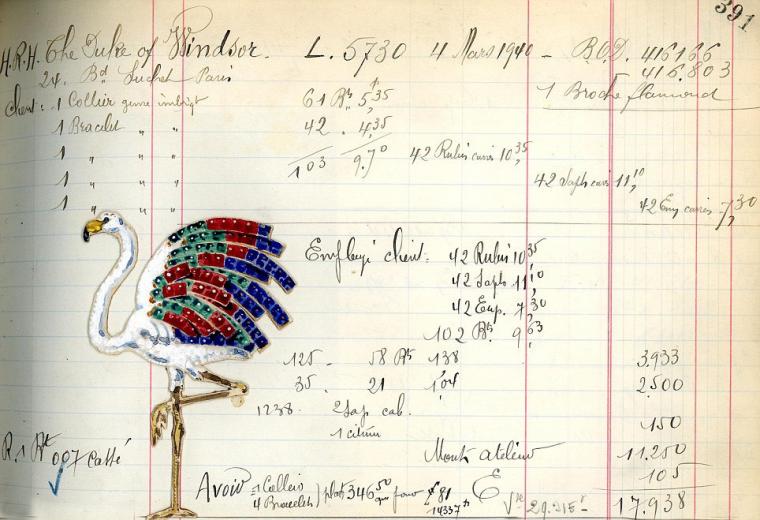 391
H.R.H. The Duke of Windsor. L. 5730 4 Mars 1940 - B.O.D. 416166
416.803
24. Bd Suchet Paris
Client: 1 Collier genre 61 Bts 5,35 1 Broche flamand
1 Bracelet " " 42 . 4,35
1 " " " 103 9.70 42 Rubis carrés 10,35
1 " " " 42 Saph carrés 11,10
1 " " " 42 Em carrés 7,30
Employé client: 42 Rubis 10,35
42 Saphs 11,10
42 Em. 7,30
102 Bts 9,63
125 - 58 Bts 1,38 3.933
35. 21 1,04 2.500
1238. 2 Sap cab. 150
1 citrine
R. 1 Bt 007 Cassé Mont. atelier 11.250
105
Avoir = 1 Colliers
4 Bracelets ) plat 346,50 pour £ 81 E
14337 17.938